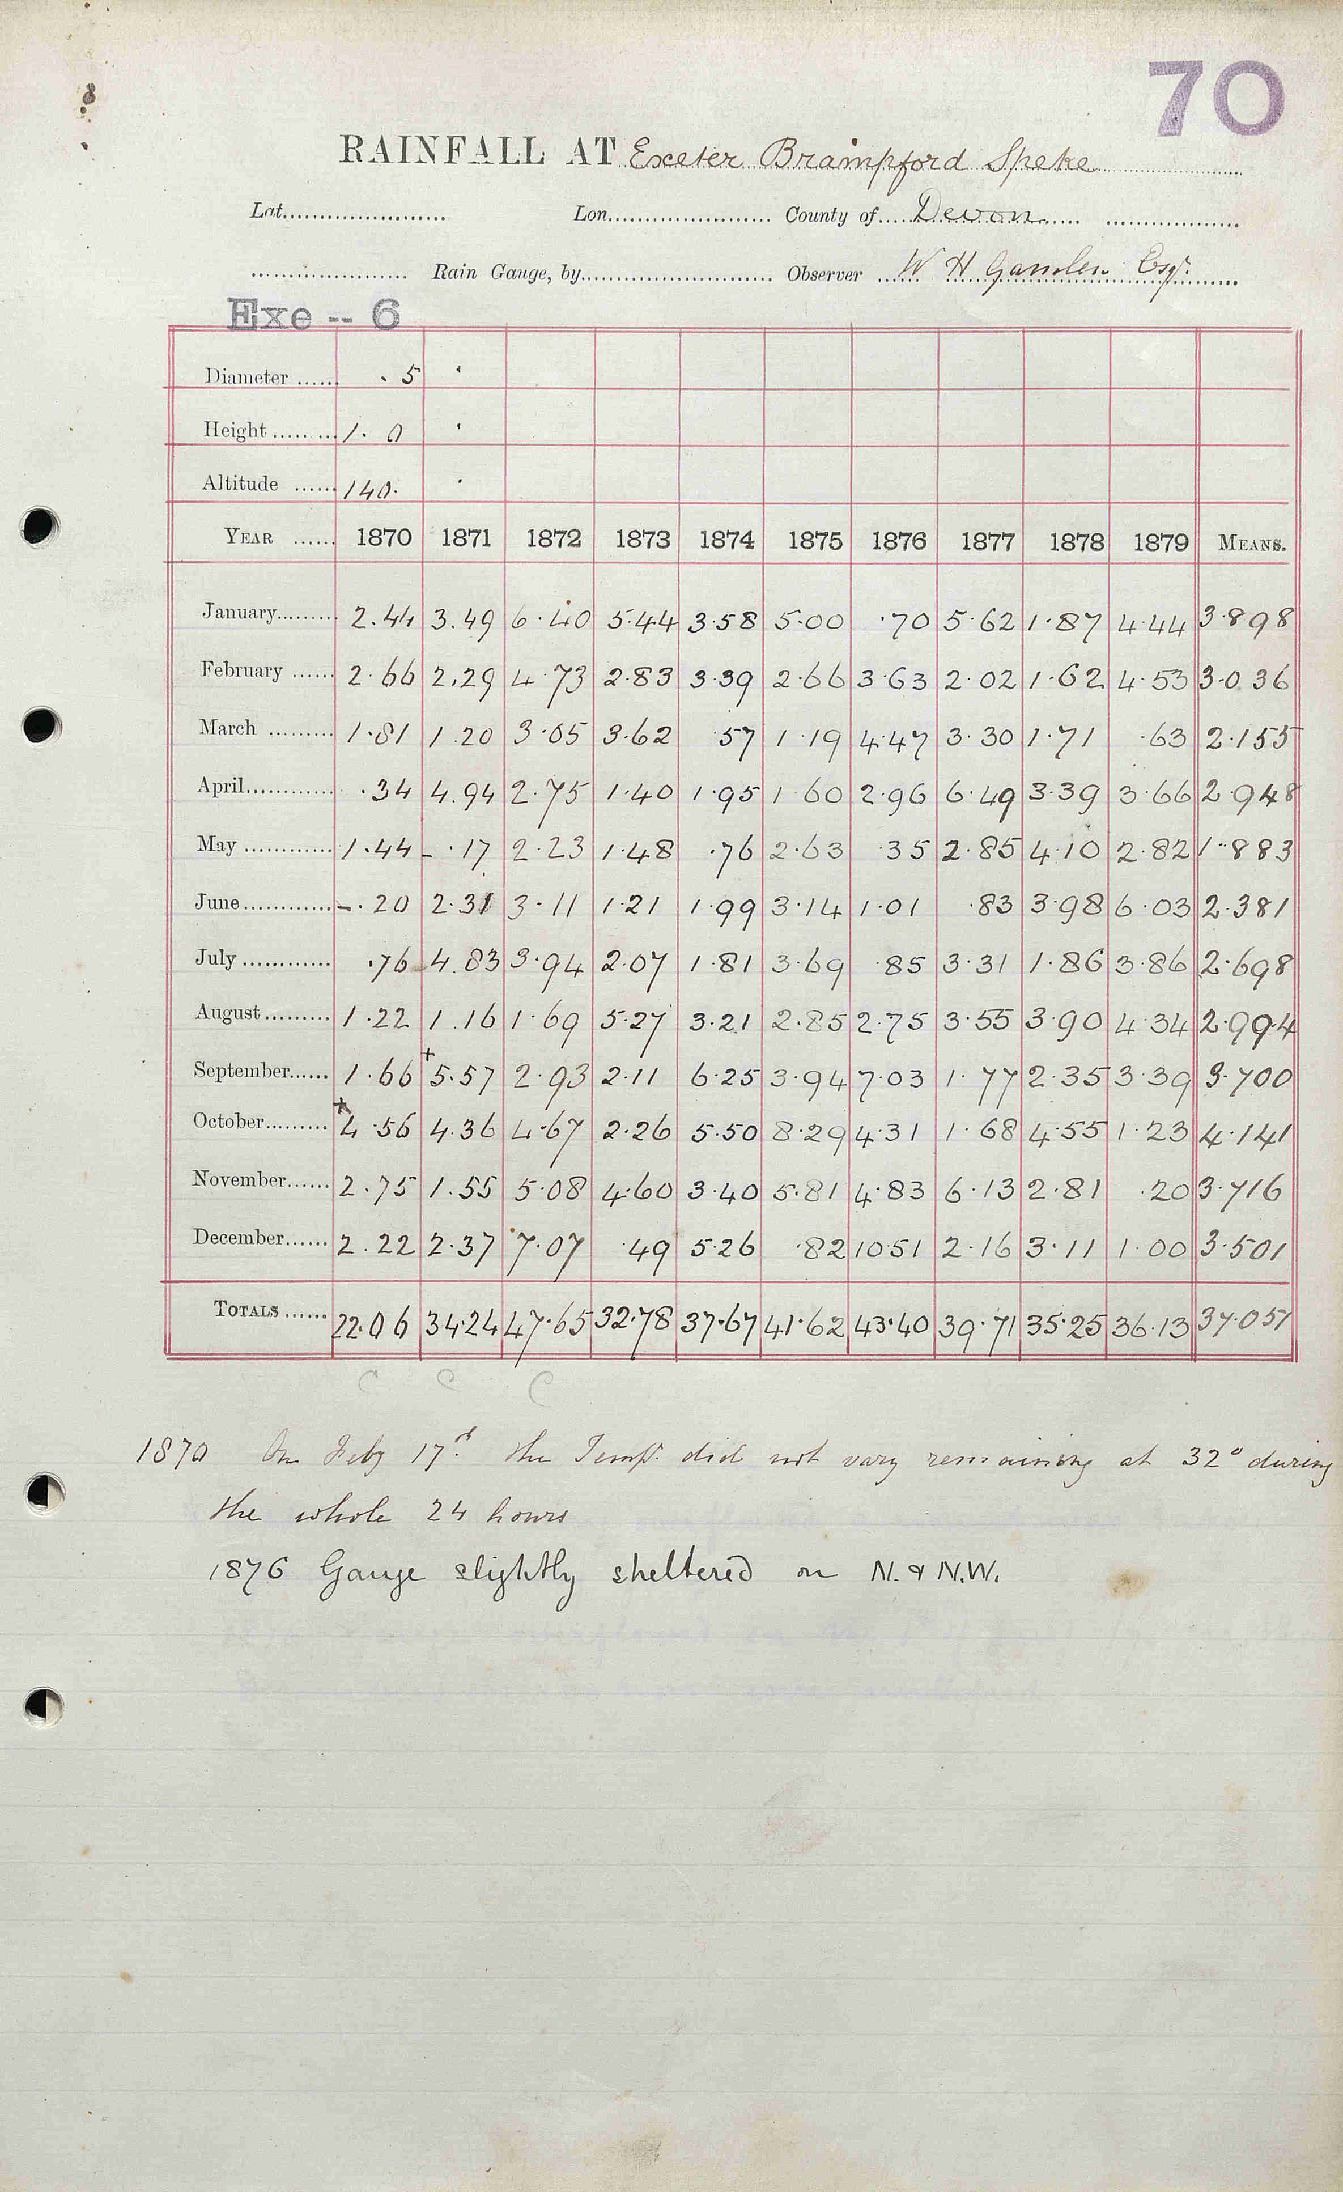 70
RAINFALL AT Exeter Brampford Speke
Lat. Lon. County of Devon
Rain Gauge, by Observer W H Gamlen Esqr.
Exe -- 6
Diameter . 5 .
Height 1. 0 .
Altitude 140. .
YEAR 1870 1871 1872 1873 1874 1875 1876 1877 1878 1879 MEANS.
January 2.44 3.49 6.40 5.44 3.58 5.00 .70 5.62 1.87 4.44 3.898
February 2.66 2.29 4.73 2.83 3.39 2.66 3.63 2.02 1.62 4.53 3.036
March 1.81 1.20 3.05 3.62 .57 1.19 4.47 3.30 1.71 .63 2.155
April .34 4.94 2.75 1.40 1.95 1.60 2.96 6.49 3.39 3.66 2.948
May 1.44 - .17 2.23 1.48 .76 2.63 .35 2.85 4.10 2.82 1.883
June -. 20 2.31 3.11 1.21 1.99 3.14 1.01 .83 3.98 6.03 2.381
July .76 4.83 3.94 2.07 1.81 3.69 .85 3.31 1.86 3.86 2.698
August 1.22 1.16 1.69 5.27 3.21 2.85 2.75 3.55 3.90 4.34 2.994
September 1.66 +5.57 2.93 2.11 6.25 3.94 7.03 1.77 2.35 3.39 3.700
October +4.56 4.36 4.67 2.26 5.50 8.29 4.31 1.68 4.55 1.23 4.141
November 2.75 1.55 5.08 4.60 3.40 5.81 4.83 6.13 2.81 .20 3.716
December 2.22 2.37 7.07 .49 5.26 .82 10.51 2.16 3.11 1.00 3.501
TOTALS 22.06 34.24 47.65 32.78 37.67 41.62 43.40 39.71 35.25 36.13 37.051
C C C
1870 On Feby 17th the Temp. did not vary remaining at 32° during
the whole 24 hours
1876 Gauge slightly sheltered on N. & N.W.